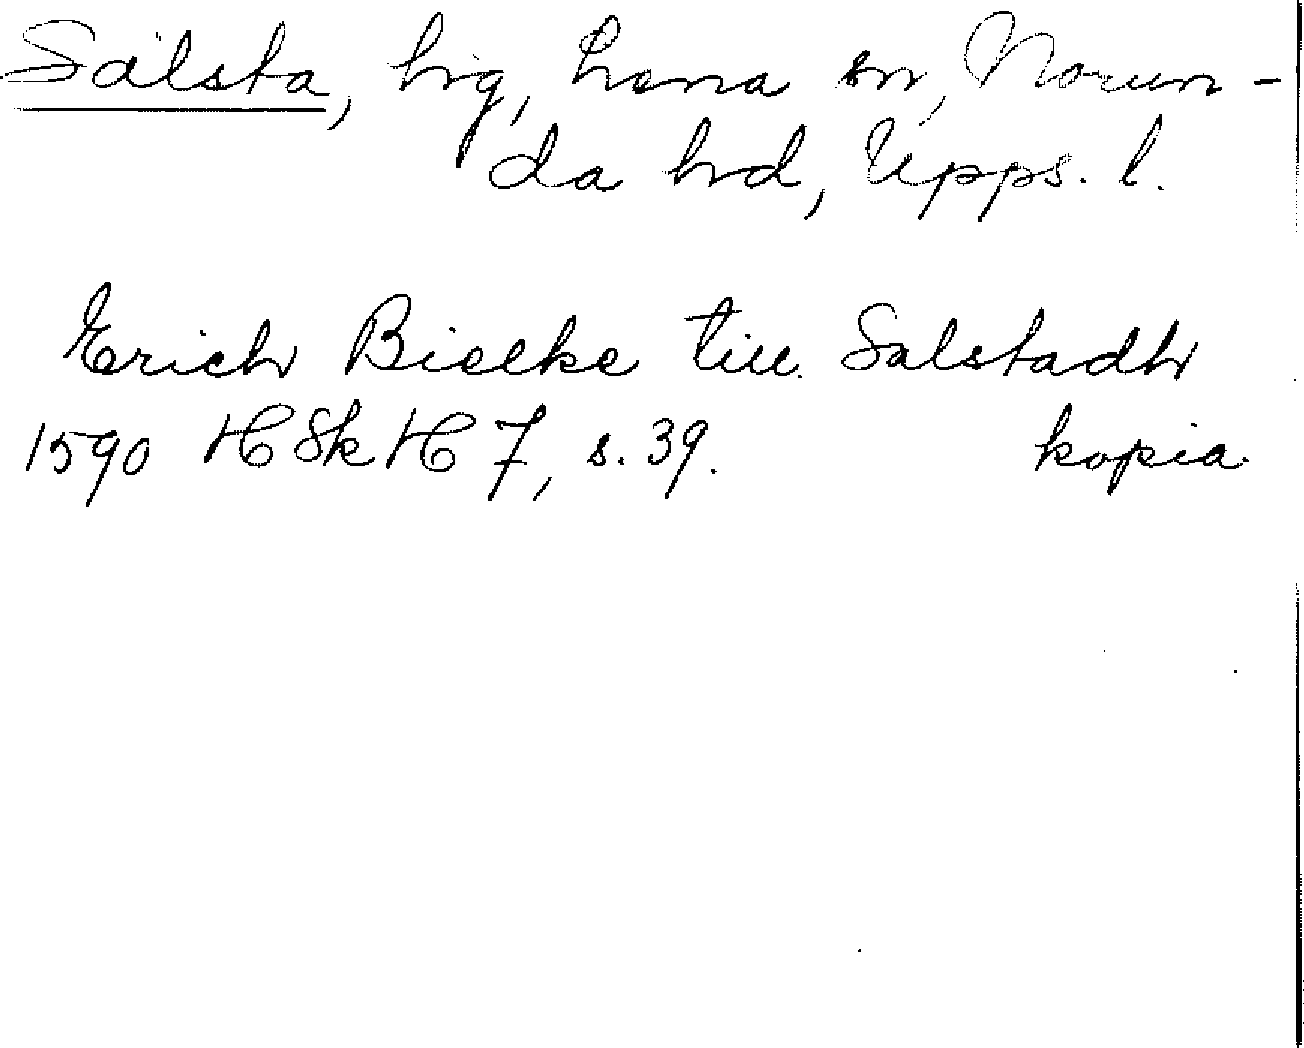 Salsta, hrg, Lena sn, Norun-
da hrd, Upps. l.
Erich Bielke till Salstadh
1590 HSkH 7, s. 39. kopia.